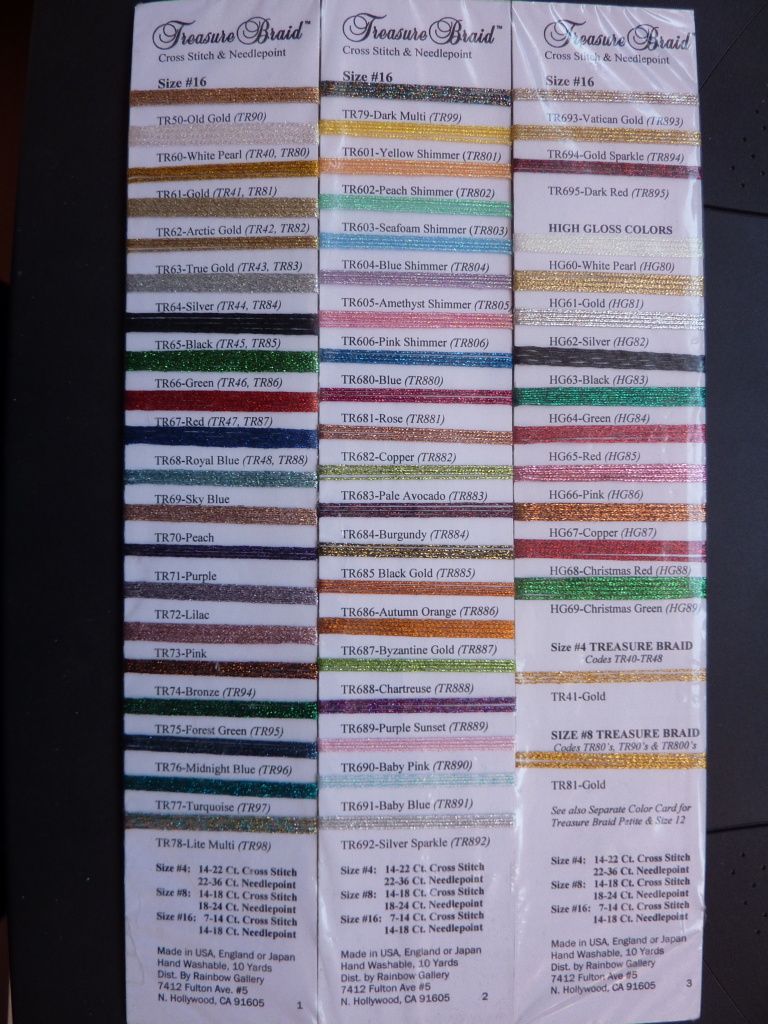 Treasure Braid™
Cross Stitch & Needlepoint
Size #16
TR50-Old Gold (TR90)
TR60-White Pearl (TR40, TR80)
TR61-Gold (TR41, TR81)
TR62-Arctic Gold (TR42, TR82)
TR63-True Gold (TR43, TR83)
TR64-Silver (TR44, TR84)
TR65-Black (TR45, TR85)
TR66-Green (TR46, TR86)
TR67-Red (TR47, TR87)
TR68-Royal Blue (TR48, TR88)
TR69-Sky Blue
TR70-Peach
TR71-Purple
TR72-Lilac
TR73-Pink
TR74-Bronze (TR94)
TR75-Forest Green (TR95)
TR76-Midnight Blue (TR96)
TR77-Turquoise (TR97)
TR78-Lite Multi (TR98)
Size #4: 14-22 Ct. Cross Stitch
22-36 Ct. Needlepoint
Size #8: 14-18 Ct. Cross Stitch
18-24 Ct. Needlepoint
Size #16: 7-14 Ct. Cross Stitch
14-18 Ct. Needlepoint
Made in USA, England or Japan
Hand Washable, 10 Yards
Dist. By Rainbow Gallery
7412 Fulton Ave. #5
N. Hollywood, CA 91605
1
Treasure Braid™
Cross Stitch & Needlepoint
Size #16
TR79-Dark Multi (TR99)
TR601-Yellow Shimmer (TR801)
TR602-Peach Shimmer (TR802)
TR603-Seafoam Shimmer (TR803)
TR604-Blue Shimmer (TR804)
TR605-Amethyst Shimmer (TR805
TR606-Pink Shimmer (TR806)
TR680-Blue (TR880)
TR681-Rose (TR881)
TR682-Copper (TR882)
TR683-Pale Avocado (TR883)
TR684-Burgundy (TR884)
TR685 Black Gold (TR885)
TR686-Autumn Orange (TR886)
TR687-Byzantine Gold (TR887)
TR688-Chartreuse (TR888)
TR689-Purple Sunset (TR889)
TR690-Baby Pink (TR890)
TR691-Baby Blue (TR891)
TR692-Silver Sparkle (TR892)
Size #4: 14-22 Ct. Cross Stitch
22-36 Ct. Needlepoint
Size #8: 14-18 Ct. Cross Stitch
18-24 Ct. Needlepoint
Size #16: 7-14 Ct. Cross Stitch
14-18 Ct. Needlepoint
Made in USA, England or Japan
Hand Washable, 10 Yards
Dist. By Rainbow Gallery
7412 Fulton Ave #5
N. Hollywood, CA 91605
2
Treasure Braid™
Cross Stitch & Needlepoint
Size #16
TR693-Vatican Gold (TR893)
TR694-Gold Sparkle (TR894)
TR695-Dark Red (TR895)
HIGH GLOSS COLORS
HG60-White Pearl (HG80)
HG61-Gold (HG81)
HG62-Silver (HG82)
HG63-Black (HG83)
HG64-Green (HG84)
HG65-Red (HG85)
HG66-Pink (HG86)
HG67-Copper (HG87)
HG68-Christmas Red (HG88)
HG69-Christmas Green (HG89)
Size #4 TREASURE BRAID
Codes TR40-TR48
TR41-Gold
SIZE #8 TREASURE BRAID
Codes TR80's, TR90's & TR800's
TR81-Gold
See also Separate Color Card for
Treasure Braid Petite & Size 12
Size #4: 14-22 Ct. Cross Stitch
22-36 Ct. Needlepoint
Size #8: 14-18 Ct. Cross Stitch
18-24 Ct. Needlepoint
Size #16: 7-14 Ct. Cross Stitch
14-18 Ct. Needlepoint
Made in USA, England or Japan
Hand Washable, 10 Yards
Dist. by Rainbow Gallery
7412 Fulton Ave #5
N. Hollywood, CA 91605
3